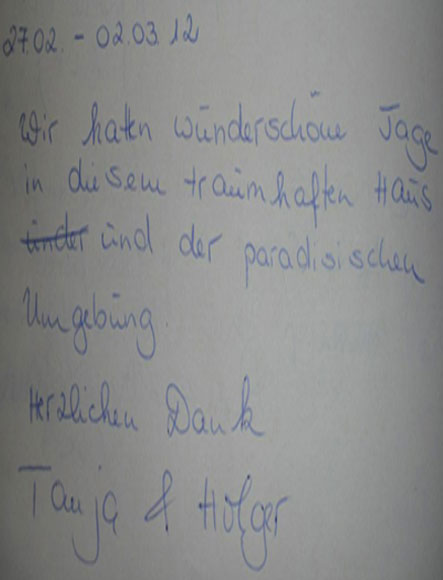 27.02. - 02.03.12
Wir hatten wunderschöne Tage
in diesem traumhaften Haus
under und der paradisischen
Umgebung.
Herzlichen Dank
Tanja & Holger